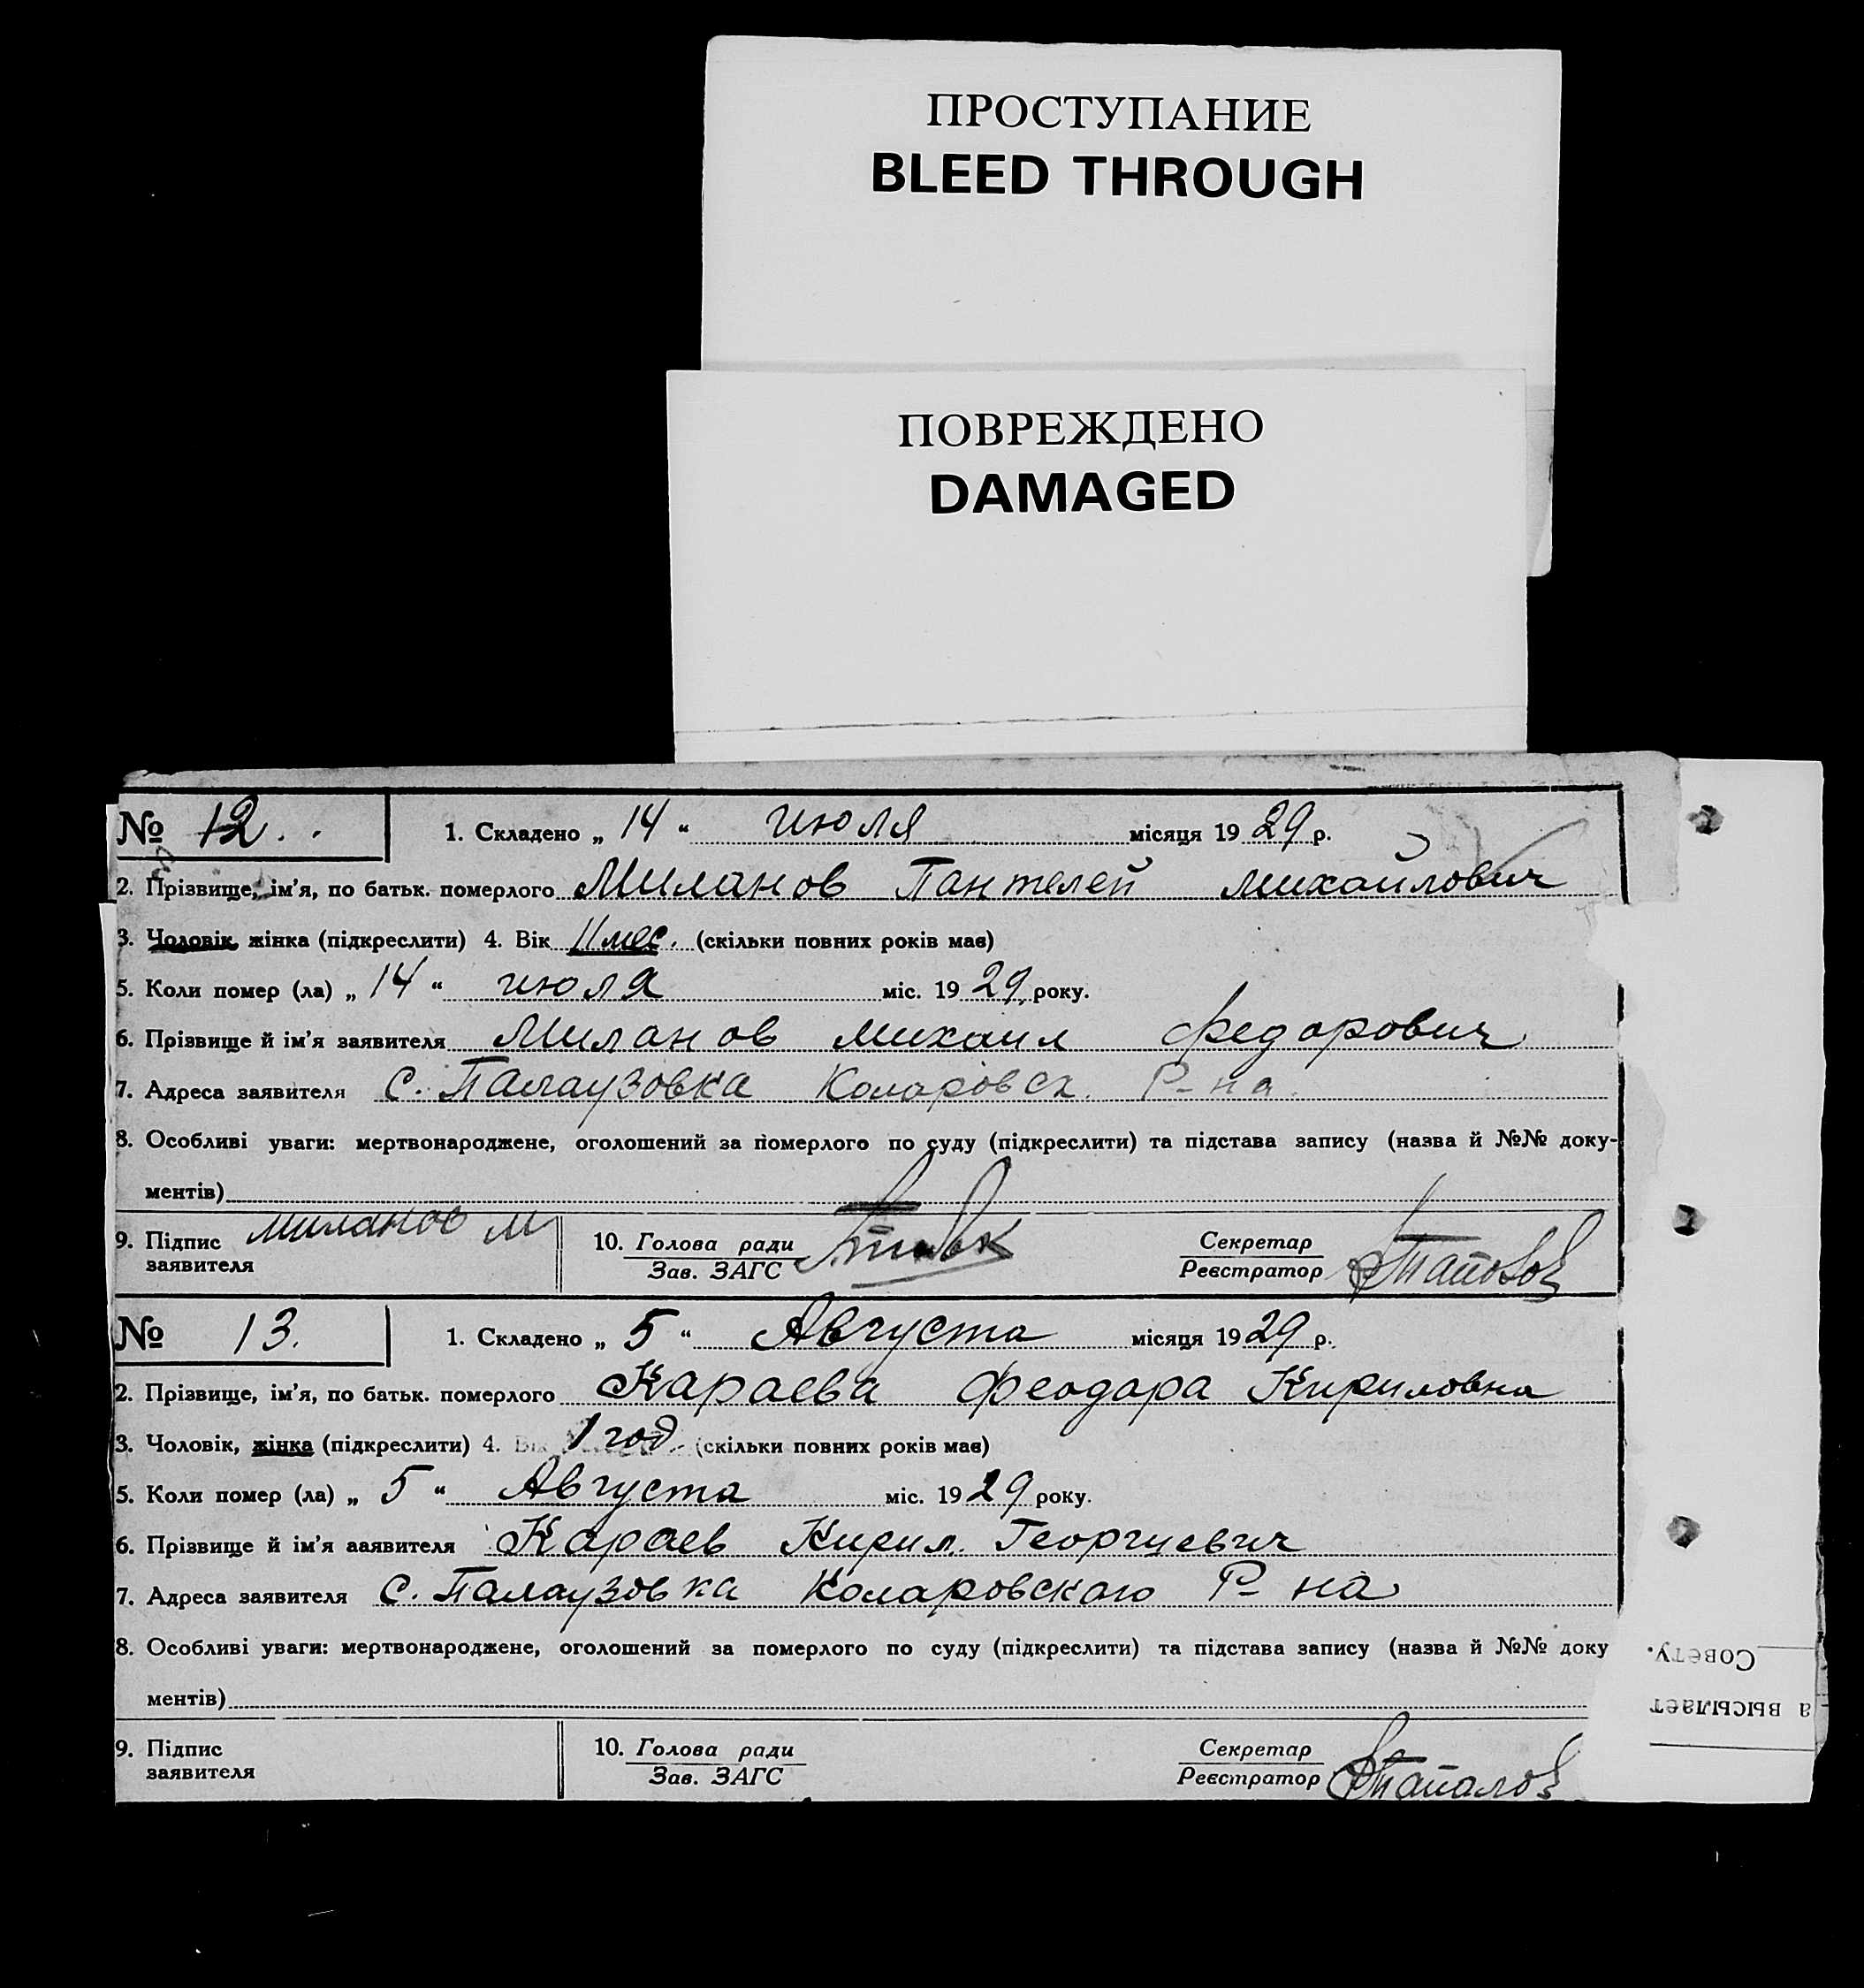 ПРОСТУПАНИЕ
BLEED THROUGH
ПОВРЕЖДЕНО
DAMAGED
№ 12.
1. Складено „ 14 “ июля місяця 19 29 р.
2. Прізвище, ім'я, по батьк. померлого Миланов Пантелей Михайлович
3. Чоловік, жінка (підкреслити) 4. Вік 11 мес. (скільки повних років має)
5. Коли помер (ла) „ 14 “ июля міс. 19 29 року.
6. Прізвище й ім'я заявителя Миланов Михаил Федорович
7. Адреса заявителя С. Палаузовка Коларовск. Р-на.
8. Особливі уваги: мертвонароджене, оголошений за померлого по суду (підкреслити) та підстава запису (назва й №№ доку-
ментів)
9. Підпис заявителя Миланов М
10. Голова ради
Зав. ЗАГС
Секретар
Реєстратор
№ 13.
1. Складено „ 5 “ Августа місяця 19 29 р.
2. Прізвище, ім'я, по батьк. померлого Караева Феодора Кириловна
3. Чоловік, жінка (підкреслити) 4. Вік 1 год. (скільки повних років має)
5. Коли помер (ла) „ 5 “ Августа міс. 19 29 року.
6. Прізвище й ім'я ааявителя Караев Кирил. Георгиевич
7. Адреса заявителя С. Палаузовка Коларовского Р-на
8. Особливі уваги: мертвонароджене, оголошений за померлого по суду (підкреслити) та підстава запису (назва й №№ доку
ментів)
9. Підпис
заявителя
10. Голова ради
Зав. ЗАГС
Секретар
Реєстратор
а высылает
Совету.